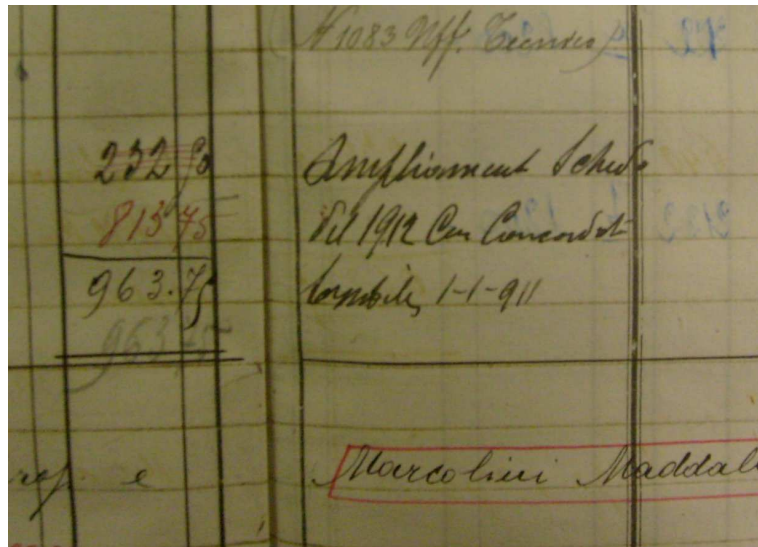 N 1083 Uff. Tecnico
232 50
813 75
963.75
963 75
Ampliament Schede
del 1912 Con Concordat
1-1-911
e
Marcolini Maddal